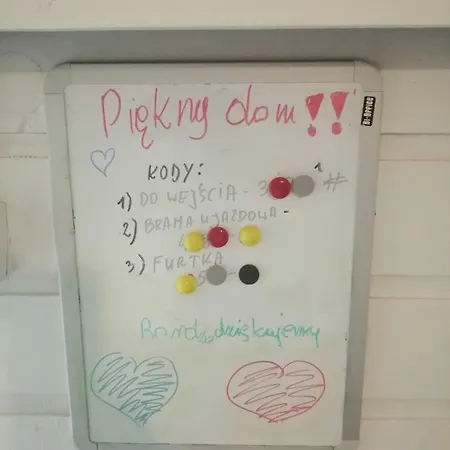 Piękny dom!!
Bi-Office
KODY:
1) DO WEJŚCIA - 3 1 #
2) BRAMA WJAZDOWA -
3) FURTKA
5 -
Bardzo dziękujemy